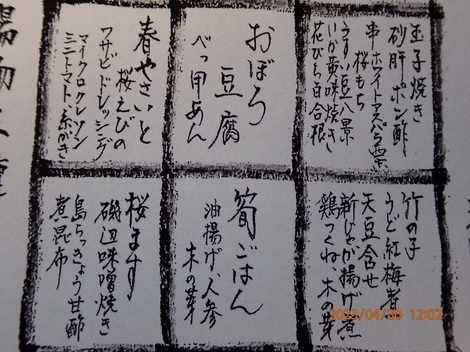 玉子焼き
砂肝ポン酢
串ホワイトアスパラ
桜もち
うすい豆八景
いか黄味焼き
花びら百合根
おぼろ
豆腐
べっ甲あん
春やさいと
桜えびの
ワサビドレッシング
マイクロクレソン
ミニトマト、糸がき
竹の子
うど紅梅煮
天豆合せ
新じゃが揚げ煮
鶏つくね、木の芽
筍ごはん
油揚げ、人参
木の芽
桜ます
磯辺味噌焼き
島らっきょう甘酢
煮昆布
12:02